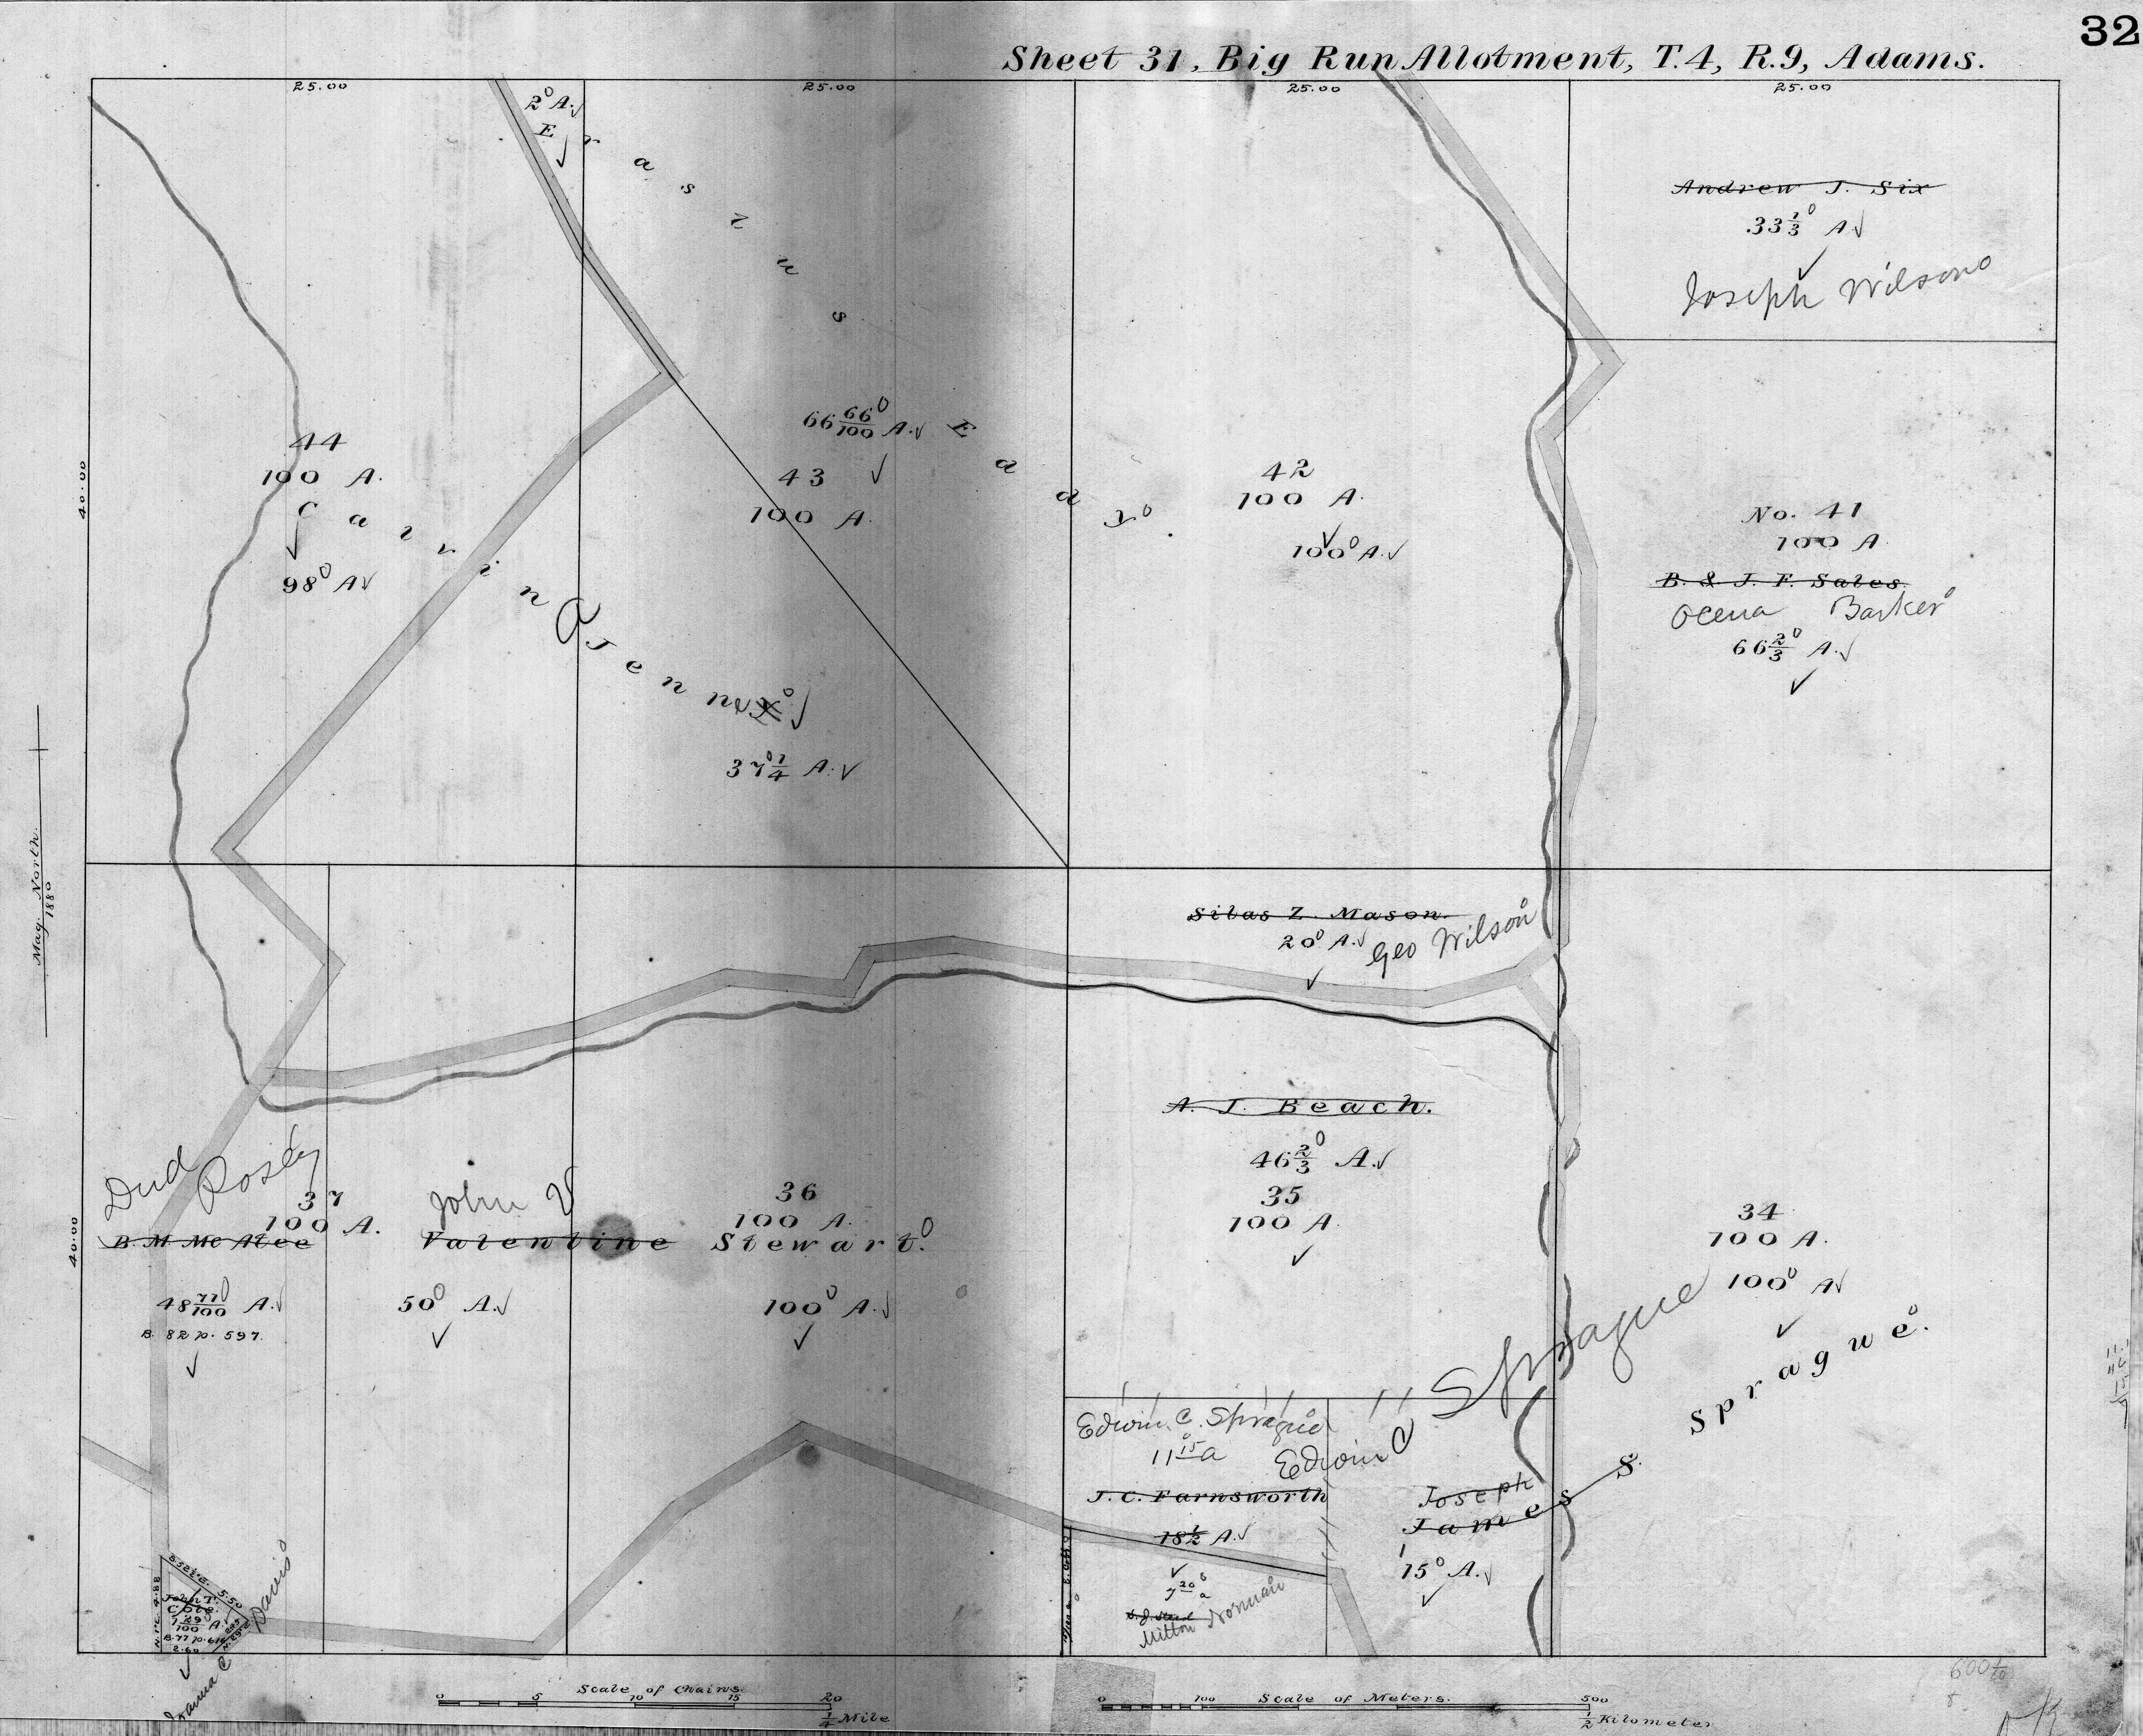 32
Sheet 31, Big Run Allotment, T.4, R.9, Adams.
25.00
25.00
25.00
25.00
2 A.
Erastus Eddy
66 66/100 A.
43
100 A.
44
100 A.
Calvin A Jenne
98 A
37 1/4 A.
42
100 A.
100 A.
Andrew J. Six
33 1/3 A
Joseph Wilson
No. 41
100 A
B. & J. F. Sales
Barker
66 2/3 A.
40.00
Mag. North.
1880
Silas Z. Mason.
20 A.
Geo Wilson
A. J. Beach.
46 2/3 A.
35
100 A.
Dud Rosey
37
100 A.
B. M McAtee
48 77/100 A.
B. 82 p. 597.
John V
Valentine Stewart.
50 A.
36
100 A.
100 A.
40.00
34
100 A.
100 A
Edwin C. Sprague
11 15 a
Edwin C Sprague
J. C. Farnsworth
18 1/2 A.
7 20 a
Milton Norman
Joseph
James S. Sprague.
15 A.
5.50
4.88
John T.
Cole
1 29/100 A.
B. 77 p. 616
2.60
C Davis
Scale of Chains.
0 5 10 15 20
1/4 Mile
Scale of Meters.
0 100 500
1/2 Kilometer